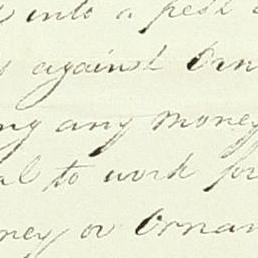 into a pest
against Orn
ng any money
al to work pr
ney or Ornam